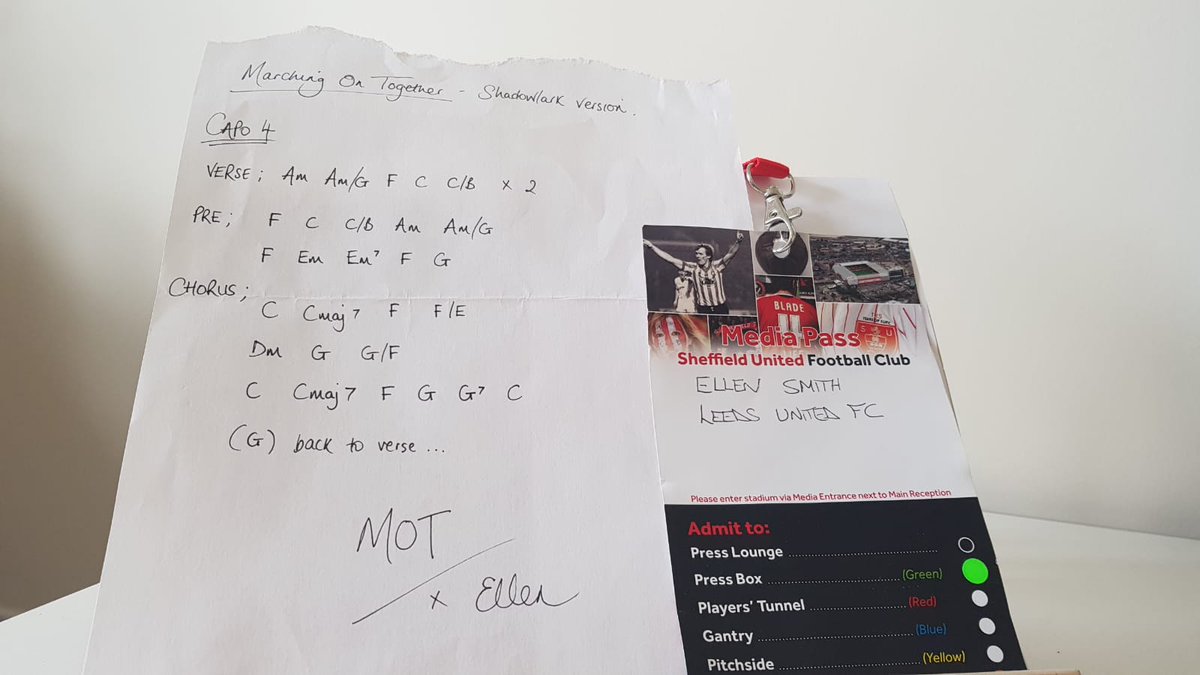 Marching On Together - Shadowlark Version.
CAPO 4
VERSE; Am Am/G F C C/B x 2
PRE; F C C/B Am Am/G
F Em Em7 F G
CHORUS;
C Cmaj7 F F/E
Dm G G/F
C Cmaj7 F G G7 C
(G) back to verse ...
MOT
x Ellen
BLADE
11
S U
Media Pass
Sheffield United Football Club
ELLEN SMITH
LEEDS UNITED FC
Please enter stadium via Media Entrance next to Main Reception
Admit to:
Press Lounge
Press Box (Green)
Players' Tunnel (Red)
Gantry (Blue)
Pitchside (Yellow)